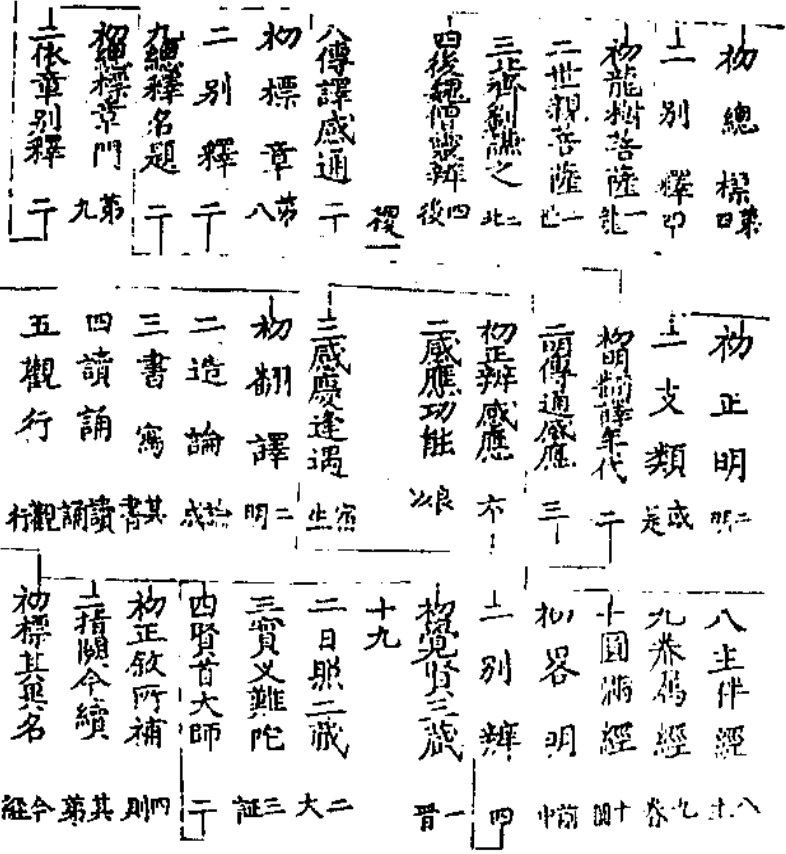 初總標 第四
二別釋 四
初龍樹菩薩 一龍
二世親菩薩 二世
三北齊劉謙之 二北
四後魏僧靈辨 四後
襆一
八傳譯感通 二
初標章 第八
二別釋 二
九總釋名題 二
初總標章門 第九
二依章別釋 二
初正明 二明
二支類 或是
初明翻譯年代 二
二明傳通感應 三
初正辨感應 不
二感應功能 以良
三感慶逢遇 宿生
初翻譯 二明
二造論 論成
三書寫 其書
四讀誦 讀誦
五觀行 觀行
八主伴經 八主
九眷屬經 九眷
十圓滿經 十圓
初略明 前中
二別辨 四
初覺賢三藏 一晉
十九
二日照三藏 二大
三實叉難陀 三証
四賢首大師 二
初正敘所補 四則
二指闕令續 其第
初標其異名 今經